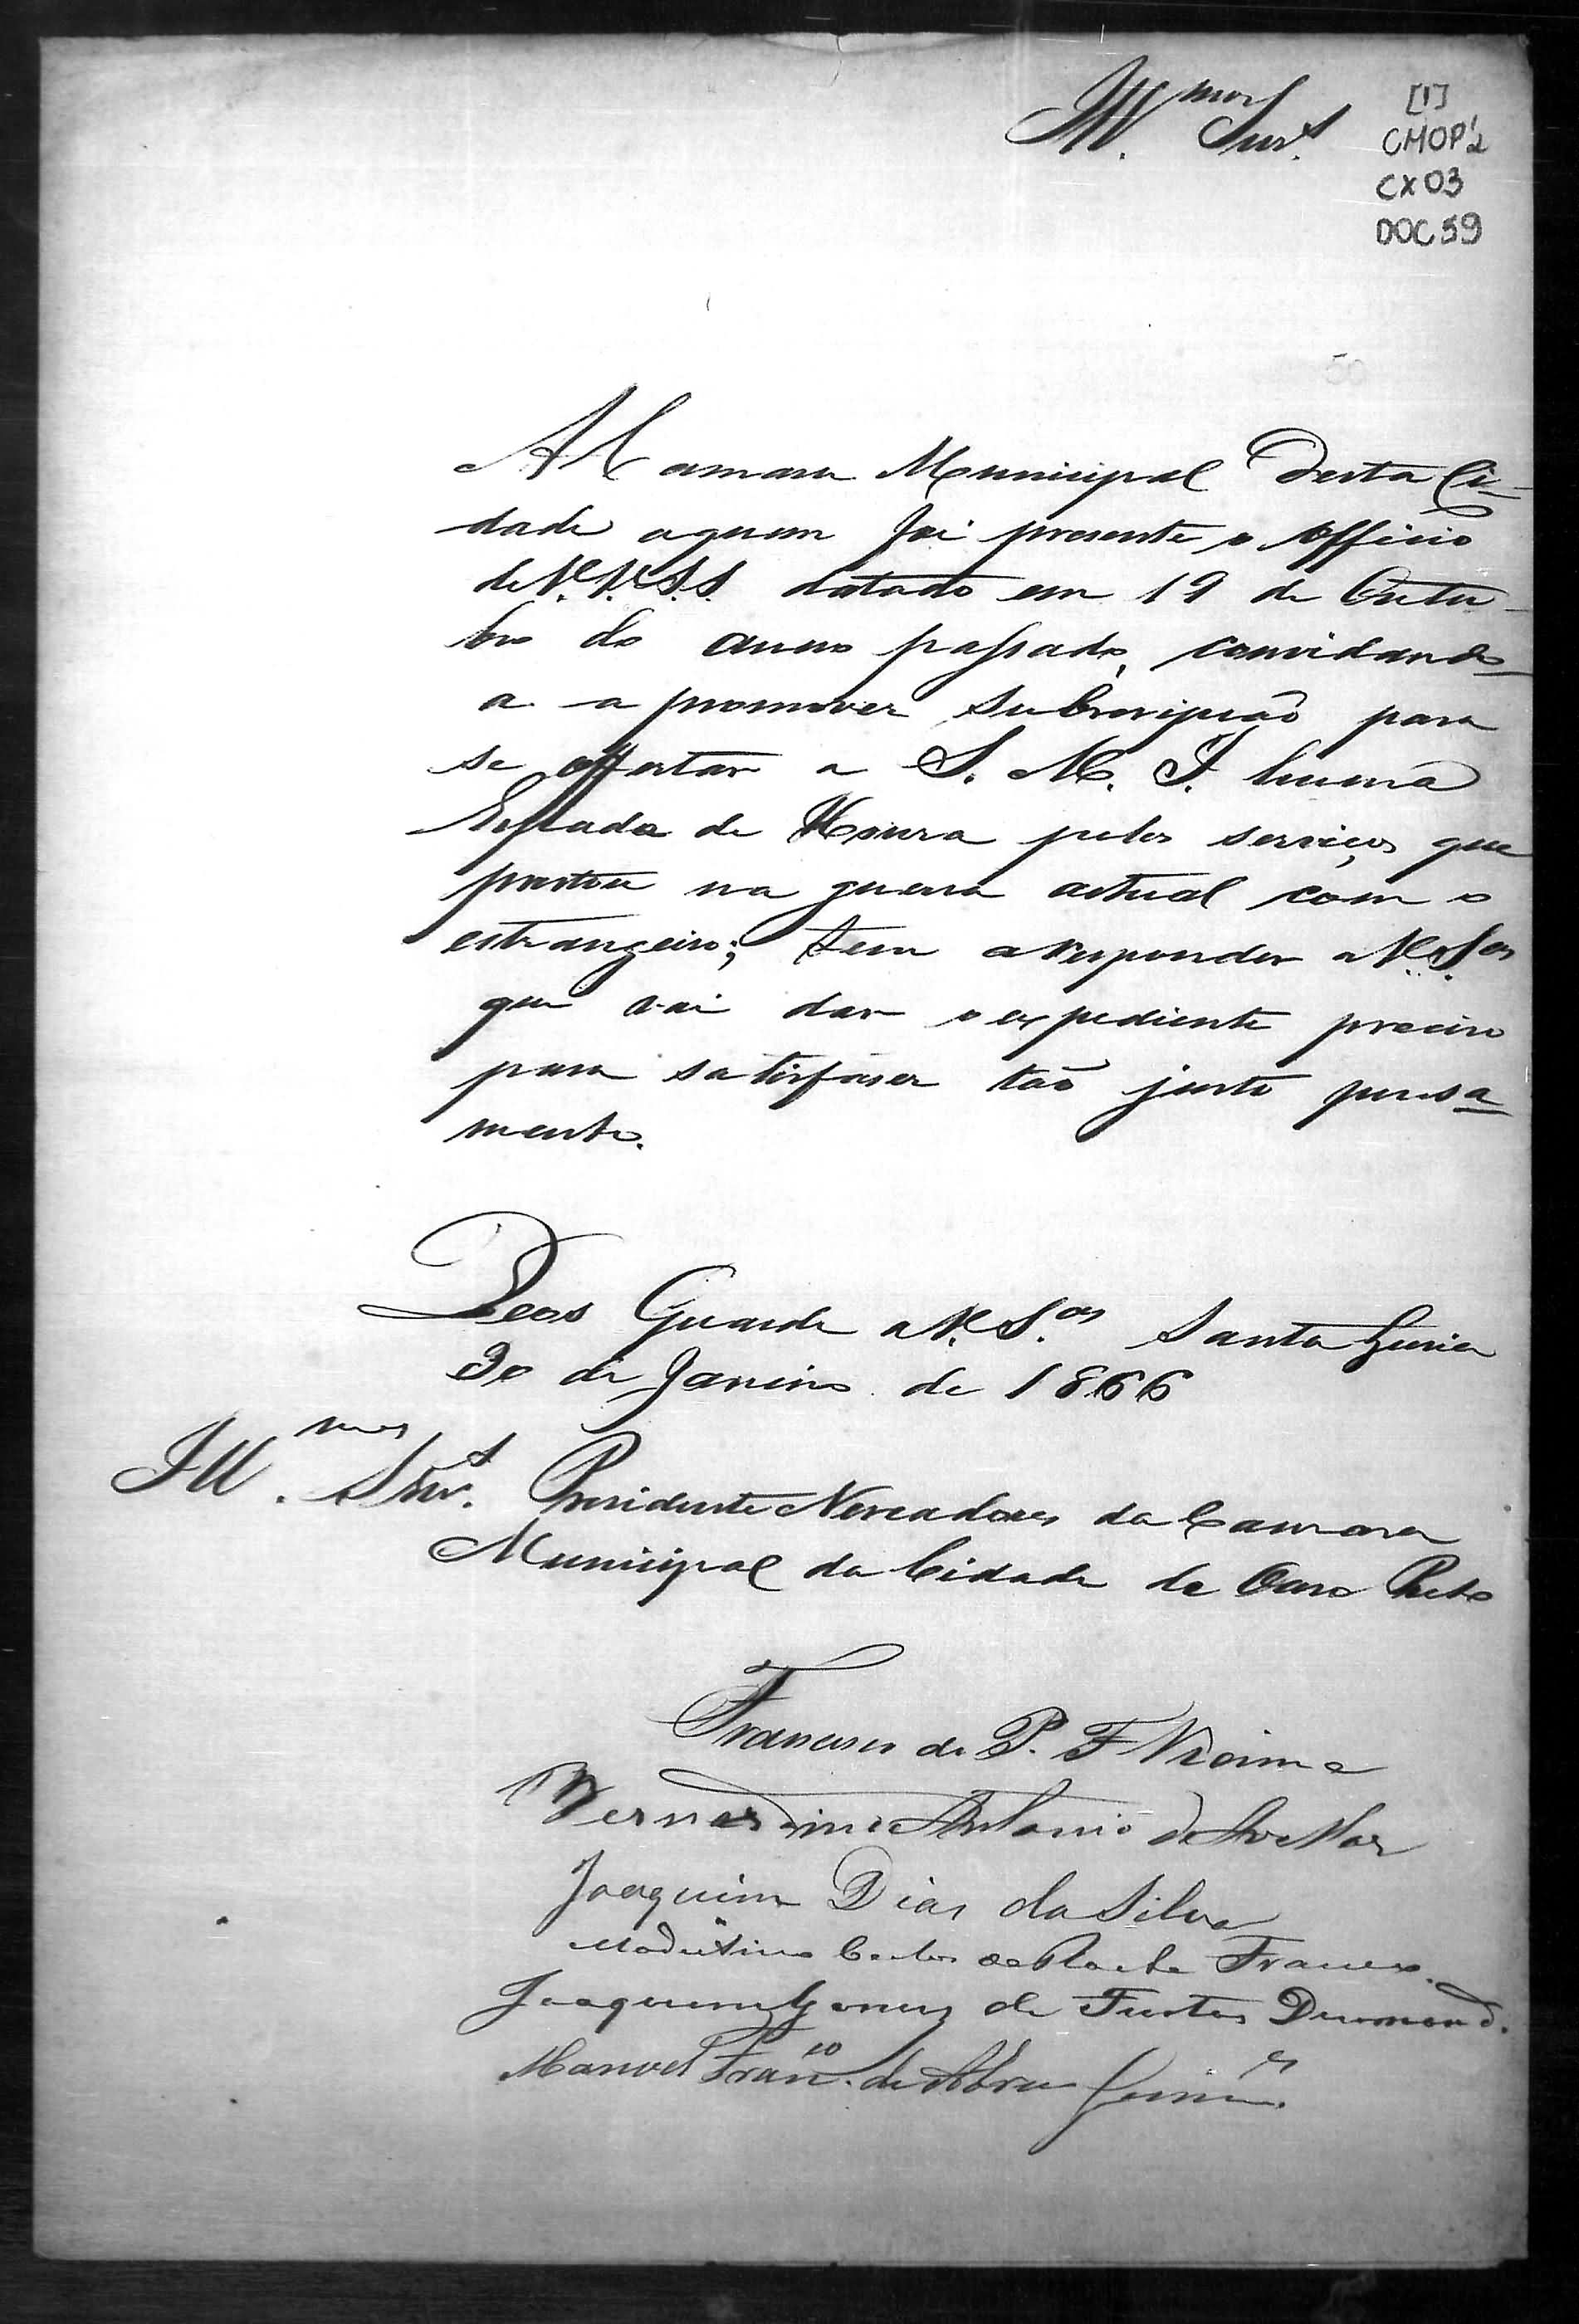 Ill.mos Snr.s
[1]
CMOP 2
CX 03
DOC 59
A Camara Municipal desta Ci-
dade aquem foi presente o officio
de V.V.S.S. datado em 19 de Outu-
bro do anno passado, convidando-
a a promover subscripção para
se offertar a S. M. I. huma
Espada de Honra pelos serviços que
prestou na guerra actual com o
estrangeiro; tem a responder a V.S.as
que vai dar o expediente preciso
para satisfaser tão justo pensa
mento.
Deos Guarde a V.S.as Santa Luzia
30 de Janeiro de 1866
Ill.mos Snr.s Presidente Vereadores da Camara
Municipal da Cidade de Ouro Preto
Francisco de P. F Vianna
Bernardino Antonio de Avellar
Joaquim Dias da Silva
Modestino Carlos da Rocha Franco.
Joaquim Gomes de Freitas Drumond.
Manoel Fran.co de Abreu Guim.es